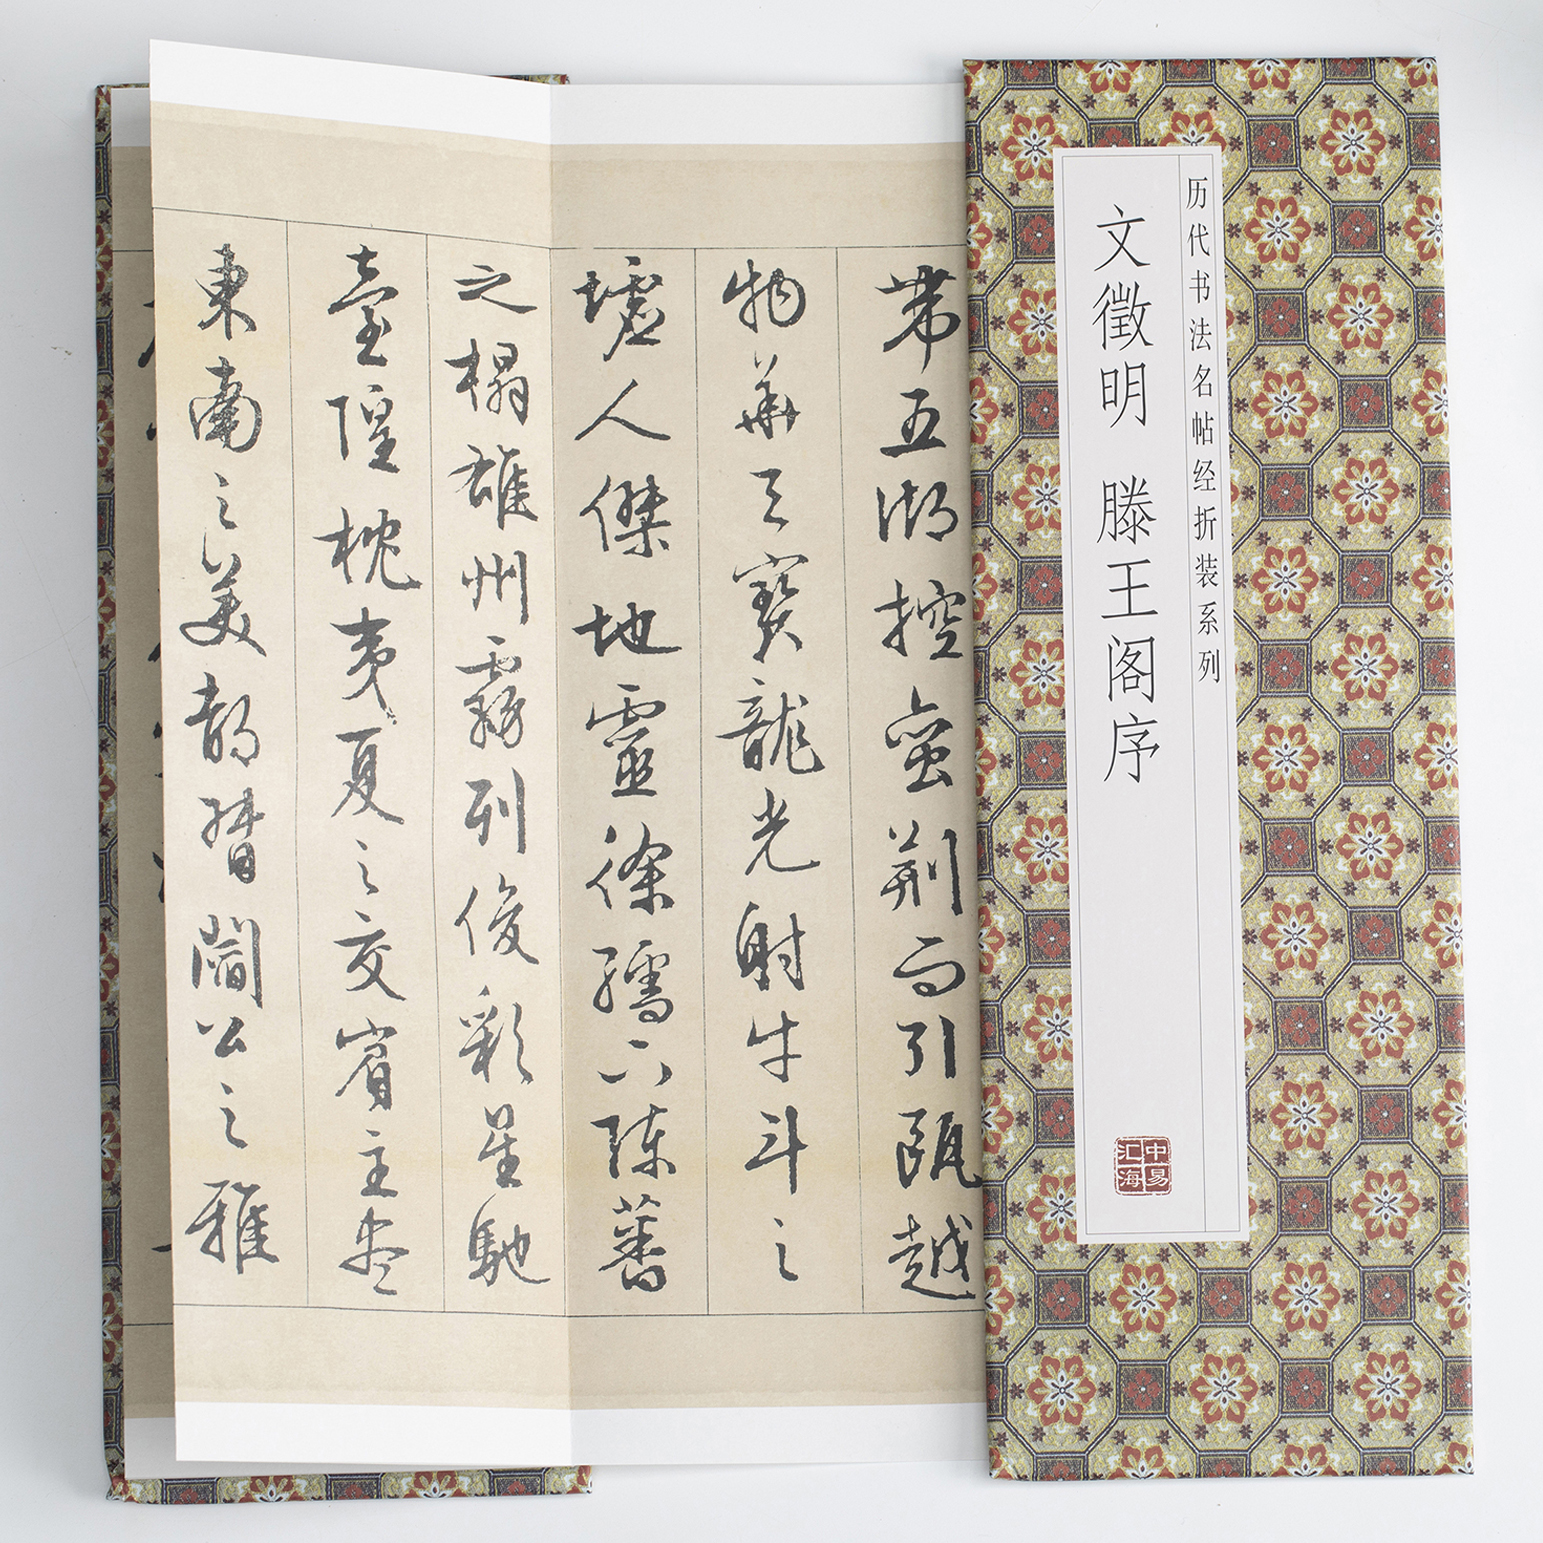 历代书法名帖经折装系列
文徵明 滕王阁序
中易
汇海
帶五湖控蛮荆而引甌越
物華天寳龍光射牛斗之
墟人傑地靈徐孺下陳蕃
之榻雄州霧列俊彩星馳
臺隍枕夷夏之交賓主盡
東南之美都督閻公之雅